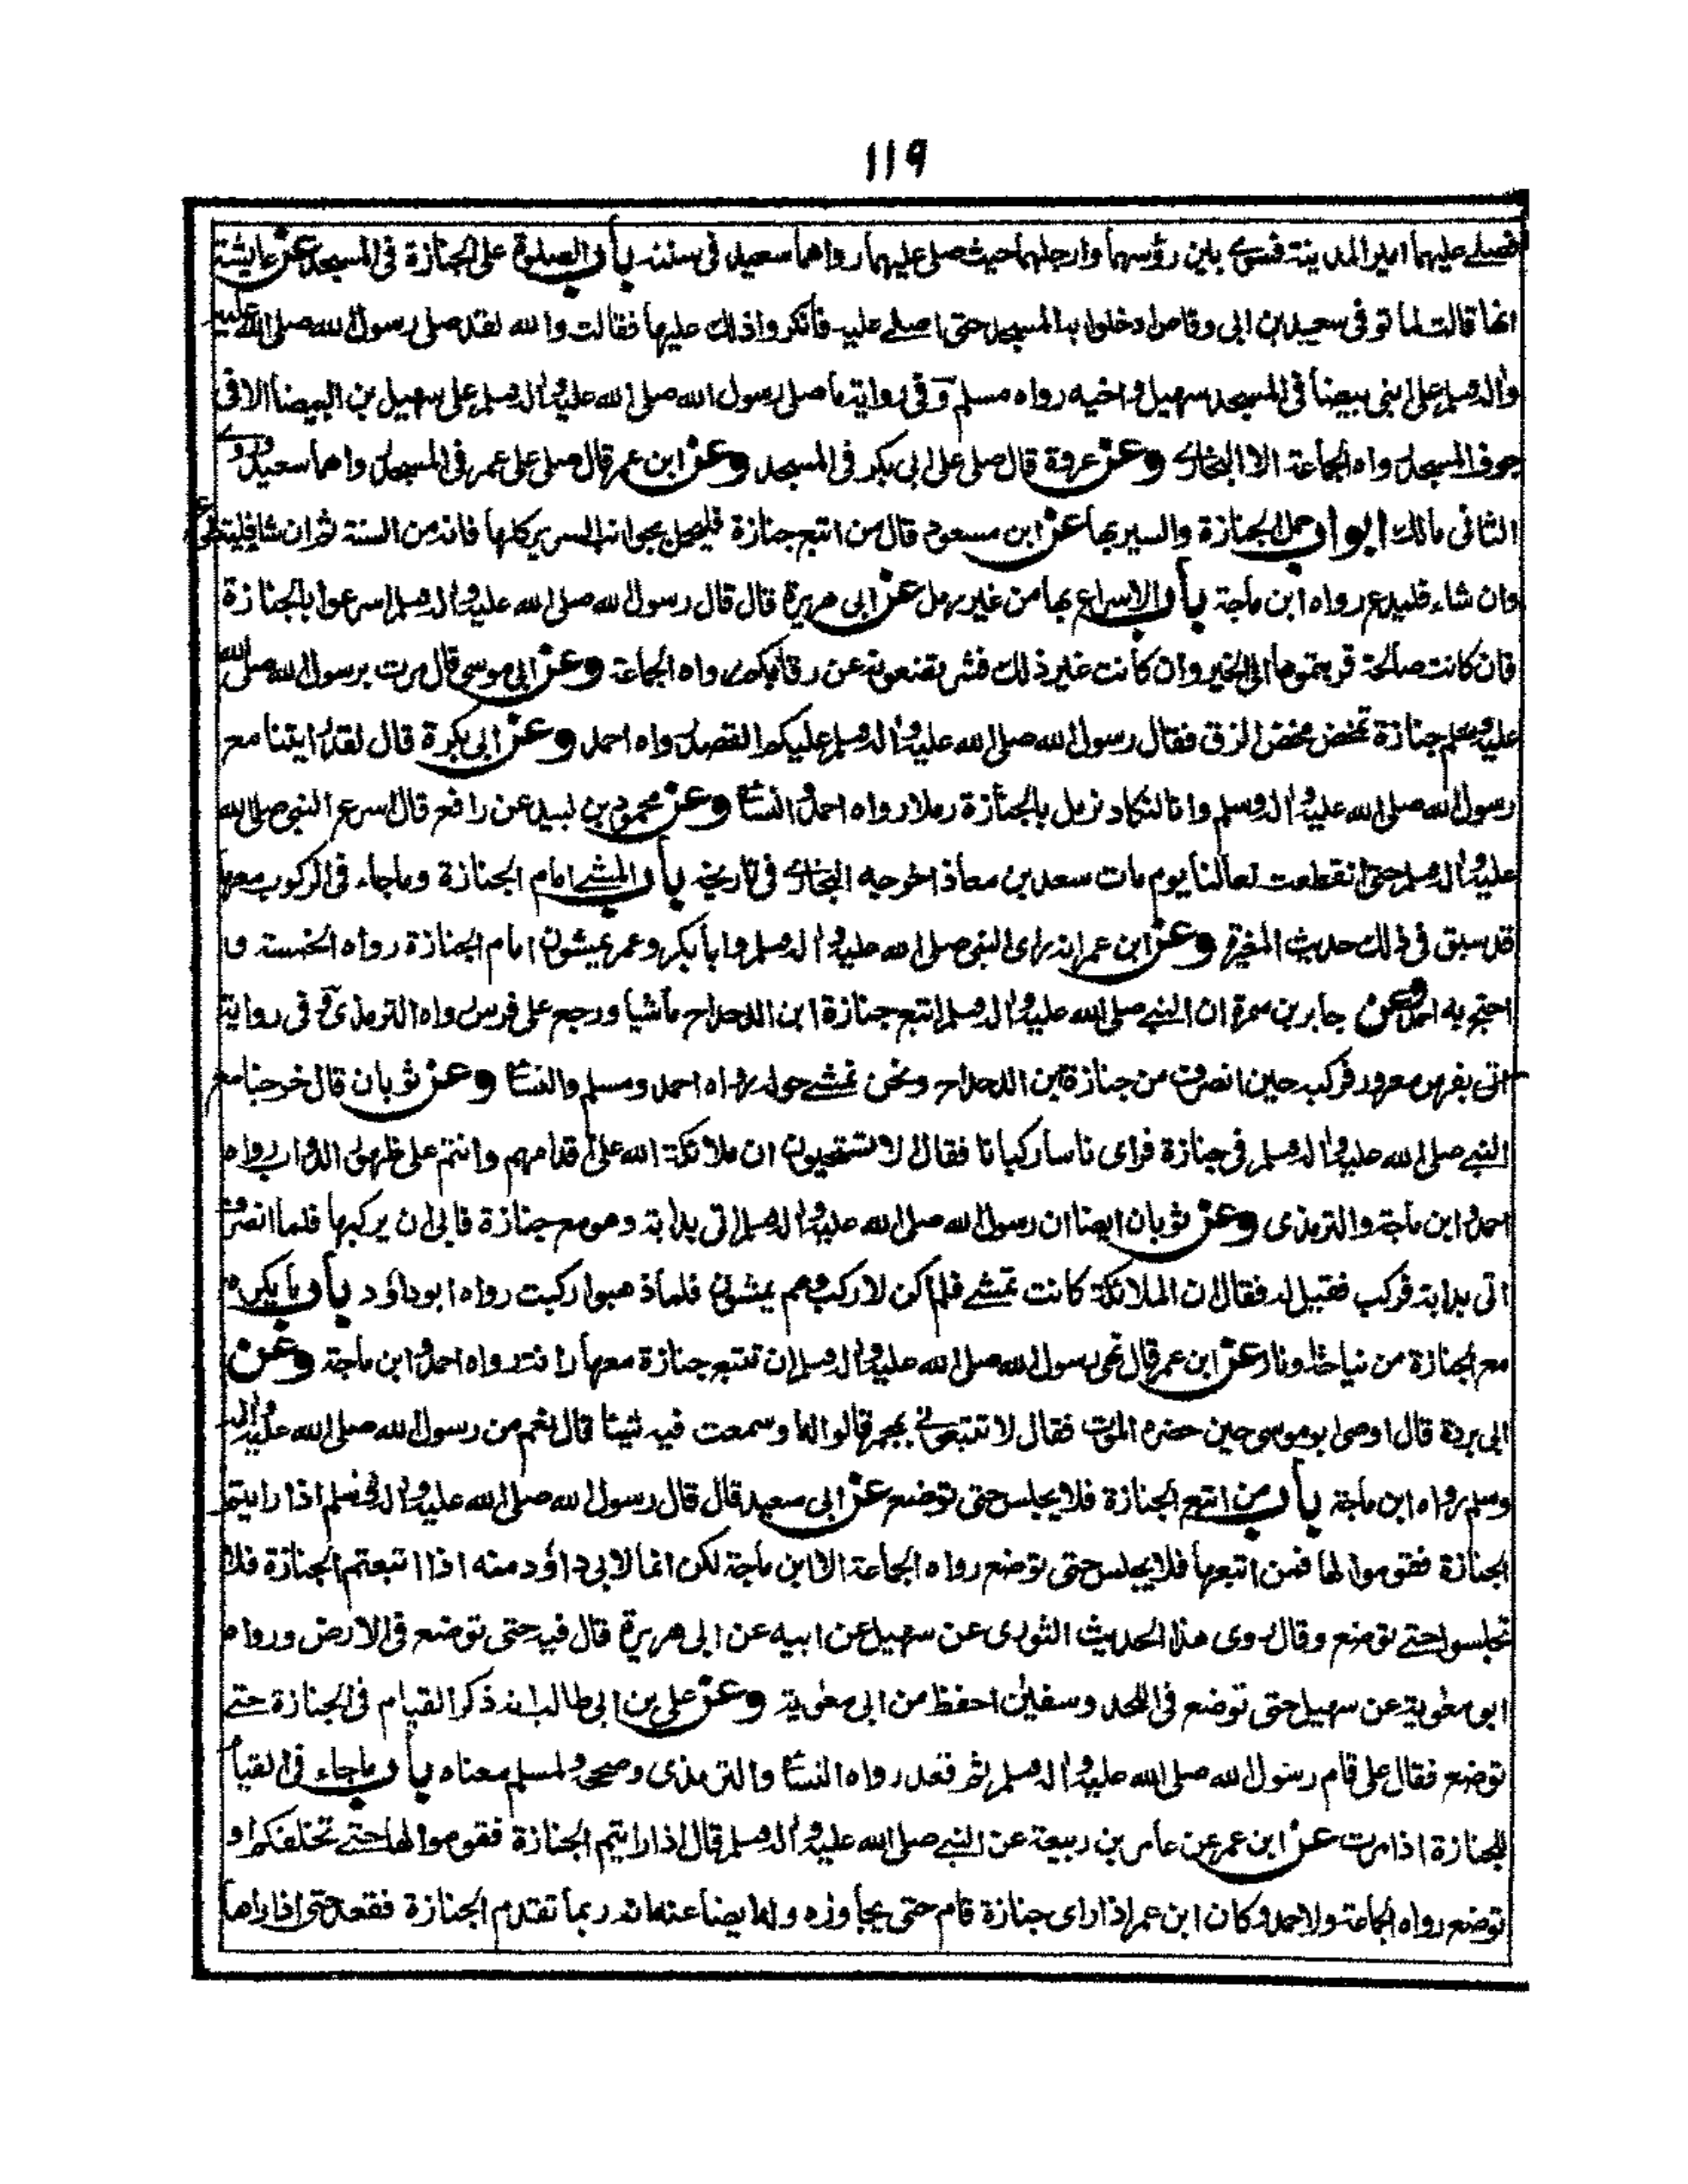 119
فصلے عليهما امير المدينة فسوى بين رؤسهما وارجلهما حيث صلى عليهما رواهما سعيد فى سننه باب الصلوة على الجنازة فى المسجد عن عايشة
انها قالت لما توفى سعد بن ابى وقاص ادخلوا به المسجد حتى اصلے عليه فانكروا ذلك عليها فقالت والله لقد صلى رسول الله صلى الله عليه
واله وسلم على ابنى بيضا فى المسجد سهيل واخيه رواه مسلم وفى رواية ما صلى رسول الله صلى الله عليه واله وسلم على سهيل بن البيضا الا فى
جوف المسجد رواه الجماعة الا البخارى وعن عروة قال صلى على ابى بكر فى المسجد وعن ابن عمر قال صلى على عمر فى المسجد رواهما سعيد وروى
الثانى مالك ابواب حمل الجنازة والسير بها عن ابن مسعود قال من اتبع جنازة فليحمل بجوانب السرير كلها فانه من السنة ثم ان شا فليتطوع
وان شاء فليدع رواه ابن ماجة باب الاسراع بها من غير رمل عن ابى هريرة قال قال رسول الله صلى الله عليه واله وسلم اسرعوا بالجنازة
فان كانت صالحة قربتموها الى الخير وان كانت غير ذلك فشر تضعونه عن رقابكم رواه الجماعة وعن ابى موسى قال مرت برسول الله صلى الله
عليه وسلم جنازة تمخض مخض الزق فقال رسول الله صلى الله عليه واله وسلم عليكم القصد رواه احمد وعن ابى بكرة قال لقد رايتنا مع
رسول الله صلى الله عليه واله وسلم وانا لنكاد نرمل بالجنازة رملا رواه احمد والنسائى وعن محمود بن لبيد عن رافع قال اسرع النبى صلى الله
عليه واله وسلم حتى انقطعت نعالنا يوم مات سعد بن معاذ اخرجه البخارى فى تاريخه باب المشے امام الجنازة وماجاء فى الركوب معها
قد سبق فى ذلك حديث المغيرة وعن ابن عمر انه راى النبى صلى الله عليه واله وسلم وابا بكر وعمر يمشون امام الجنازة رواه الخمسة و
احتج به احمد وعن جابر بن سمرة ان النبے صلى الله عليه واله وسلم اتبع جنازة ابن الدحداح ماشيا ورجع على فرس رواه الترمذى وفى رواية
اتى بفرس معرور فركب حين انصرف من جنازة ابن الدحداح ونحن نمشے حوله رواه احمد ومسلم والنسائى وعن ثوبان قال خرجنا مع
النبے صلى الله عليه واله وسلم فى جنازة فراى ناسا ركبانا فقال الا تستحيون ان ملائكة الله على اقدامهم وانتم على ظهور الدواب رواه
احمد وابن ماجة والترمذى وعن ثوبان ايضا ان رسول الله صلى الله عليه واله وسلم اتى بدابة وهو مع جنازة فابى ان يركبها فلما انصرف
اتى بدابة فركب فقيل له فقال ان الملائكة كانت تمشے فلم اكن لاركب وهم يمشون فلما ذهبوا ركبت رواه ابو داؤد باب ما يكره
مع الجنازة من نياحة او نار عن ابن عمر قال نهى رسول الله صلى الله عليه واله وسلم ان تتبع جنازة معها رانة رواه احمد وابن ماجة وعن
ابى بردة قال اوصى ابو موسى حين حضره الموت فقال لا تتبعونے بمجمر قالوا اوما سمعت فيه شيئا قال نعم من رسول الله صلى الله عليه واله
وسلم رواه ابن ماجة باب من اتبع الجنازة فلا يجلس حتى توضع عن ابى سعيد قال قال رسول الله صلى الله عليه واله وسلم اذا رايتم
الجنازة فقوموا لها فمن اتبعها فلا يجلس حتى توضع رواه الجماعة الا ابن ماجة لكن انما لابى داؤد منه اذا اتبعتم الجنازة فلا
تجلسوا حتے توضع وقال روى هذا الحديث الثورى عن سهيل عن ابيه عن ابى هريرة قال فيه حتى توضع فى الارض ورواه
ابو معوية عن سهيل حتى توضع فى اللحد وسفين احفظ من ابى معوية وعن على بن ابى طالب انه ذكر القيام فى الجنازة حتے
توضع فقال على قام رسول الله صلى الله عليه واله وسلم ثم قعد رواه النسائى والترمذى وصححه ولمسلم معناه باب ماجاء فى القيام
للجنازة اذا مرت عن ابن عمر عن عامر بن ربيعة عن النبے صلى الله عليه واله وسلم قال اذا رايتم الجنازة فقوموا لها حتے تخلفكم او
توضع رواه الجماعة ولاحمد وكان ابن عمر اذا راى جنازة قام حتى يجاوزه وله ايضا عنه انه ربما تقدم الجنازة فقعد حتى اذا راها